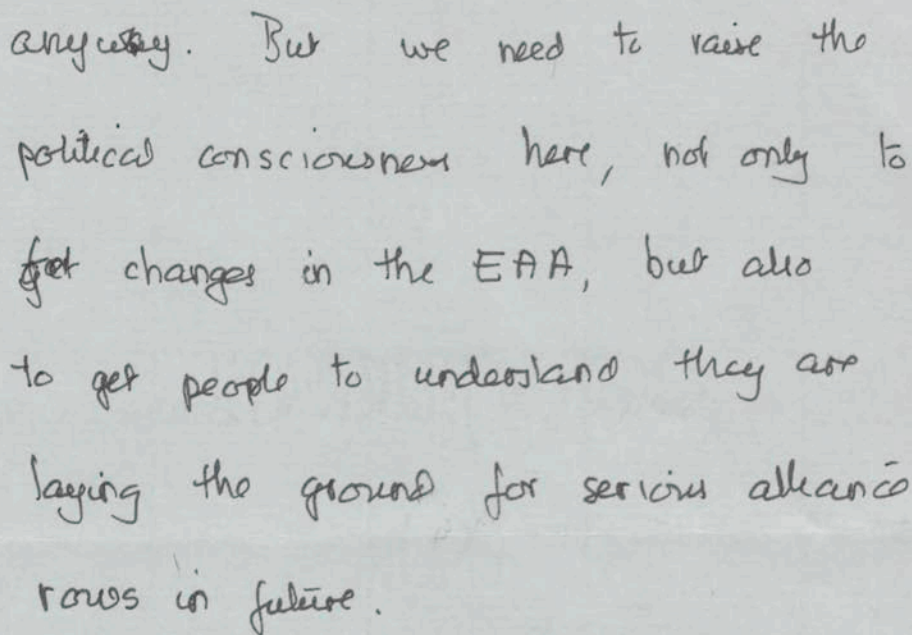 anyway. But we need to raise the
political consciousness here, not only to
get changes in the EAA, but also
to get people to understand they are
laying the ground for serious alliance
rows in future.